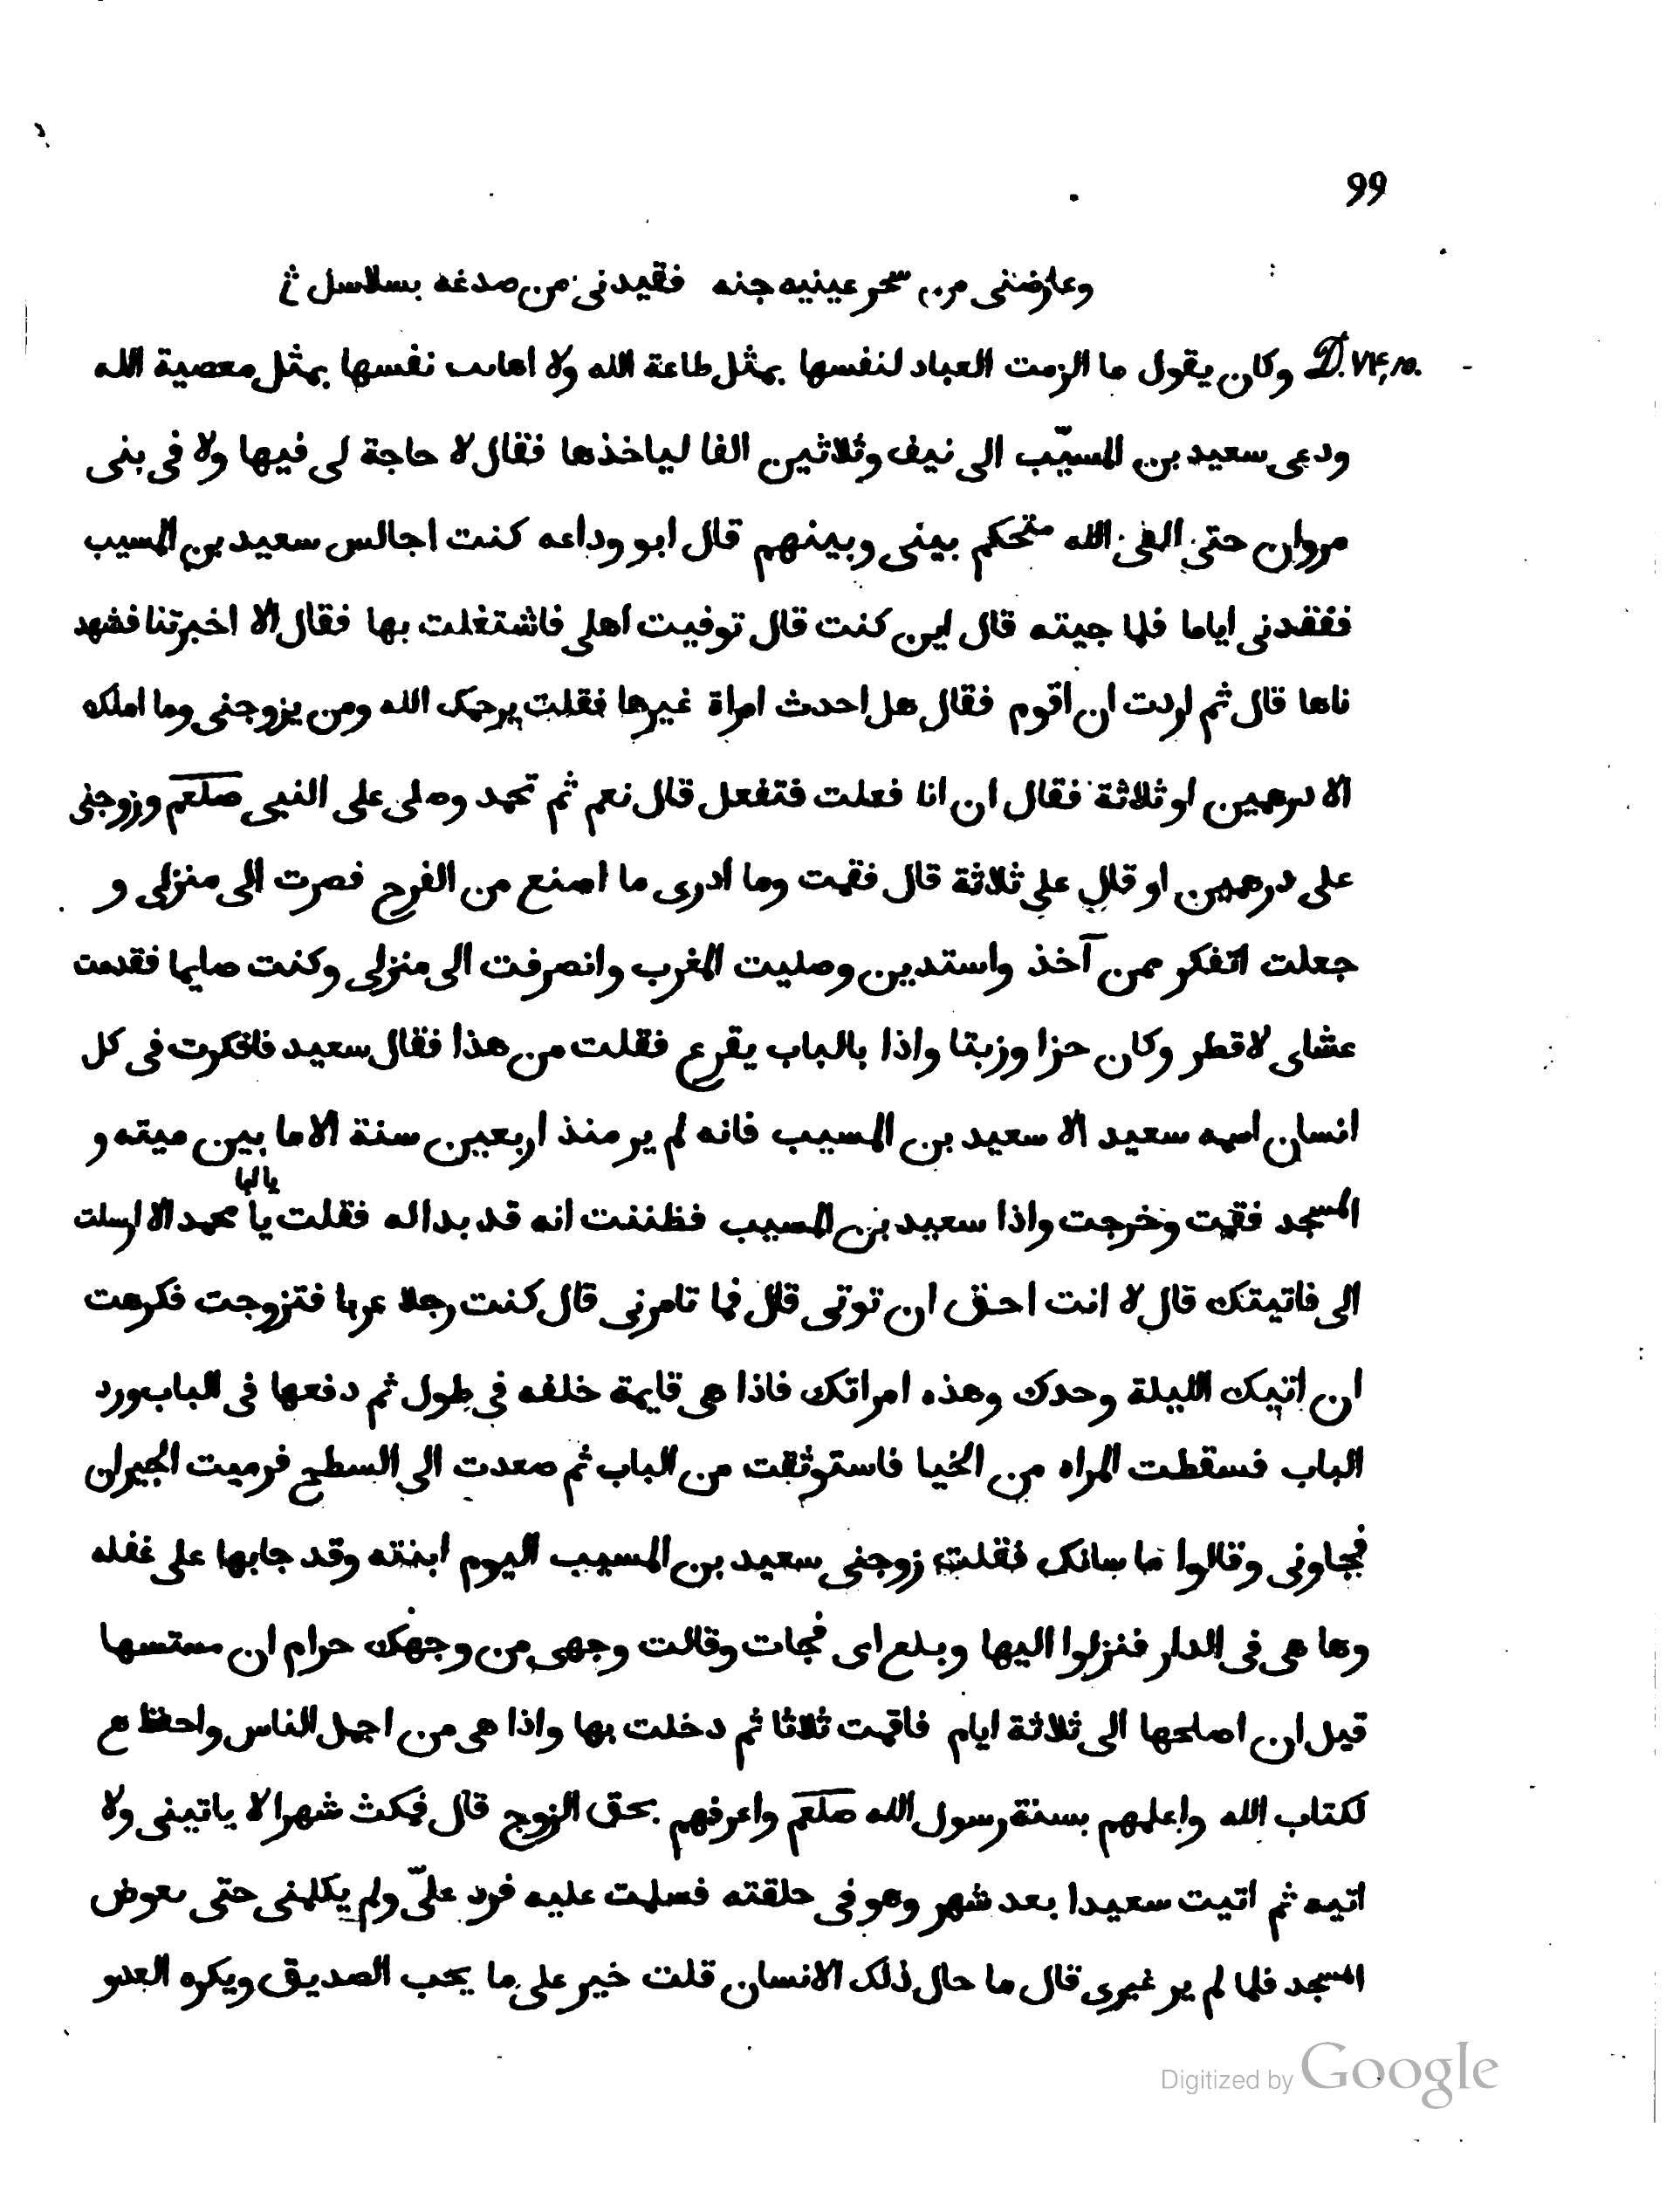 99
وعارضنى من سحر عينيه جنه فقيدنى من صدغه بسلاسل ثم
D. ٧٢٤,١٥. وكان يقول ما الزمت العباد لنفسها بمثل طاعة الله ولا اهانت نفسها بمثل معصية الله
ودعى سعيد بن المسيّب الى نيف وثلاثين الفا لياخذها فقال لا حاجة لى فيها ولا فى بنى
مروان حتى القى الله فتحكم بينى وبينهم قال ابو وداعه كنت اجالس سعيد بن المسيب
ففقدنى اياما فلما جيته قال اين كنت قال توفيت اهلى فاشتغلت بها فقال الا اخبرتنا فشهد
ناها قال ثم اردت ان اقوم فقال هل احدث امراة غيرها فقلت يرحمك الله ومن يزوجنى وما املك
الا درهمين او ثلاثة فقال ان انا فعلت فتفعل قال نعم ثم تحمد وصلى على النبى صلعم وزوجنى
على درهمين او قال على ثلاثة قال فقمت وما ادرى ما اصنع من الفرح فصرت الى منزلى و
جعلت اتفكر ممن آخذ واستدين وصليت المغرب وانصرفت الى منزلى وكنت صايما فقدمت
عشاى لافطر وكان حزا وزيتا واذا بالباب يقرع فقلت من هذا فقال سعيد فافكرت فى كل
انسان اسمه سعيد الا سعيد بن المسيب فانه لم ير منذ اربعين سنة الا ما بين ميته و
المسجد فقمت وخرجت واذا سعيد بن المسيب فظننت انه قد بدا له فقلت يا محمد الا ارسلت
يا ابا
الى فاتيتك قال لا انت احق ان توتى قال فما تامرنى قال كنت رجلا عربا فتزوجت فكرهت
ان اتيك الليلة وحدك وهذه امراتك فاذا هى قايمة خلفه فى طول ثم دفعها فى الباب ورد
الباب فسقطت المراه من الحيا فاستوثقت من الباب ثم صعدت الى السطح فرميت الجيران
فجاونى وقالوا ما سانك فقلت زوجنى سعيد بن المسيب اليوم ابنته وقد جا بها على غفله
وها هى فى الدار فنزلوا اليها وبلع اى فجات وقالت وجهى من وجهك حرام ان مستسها
قبل ان اصلحها الى ثلاثة ايام فاقمت ثلاثا ثم دخلت بها واذا هى من اجمل الناس واحفظهم
لكتاب الله واعلمهم بسنة رسول الله صلعم واعرفهم بحق الزوج قال فمكث شهرا لا ياتينى ولا
اتيه ثم اتيت سعيدا بعد شهر وهو فى حلقته فسلمت عليه فرد علىّ ولم يكلمنى حتى تعوض
المسجد فلما لم ير غيرى قال ما حال ذلك الانسان قلت خير على ما يحب الصديق ويكره العدو
Digitized by Google